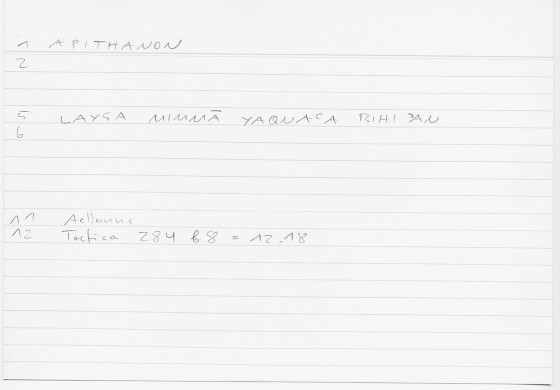 1 APITHANON
2
5 LAYSA MIMMĀ YAQNAʿA BIHI
6
11 Aelianus
12 Tactica 284 b8 = 12.18